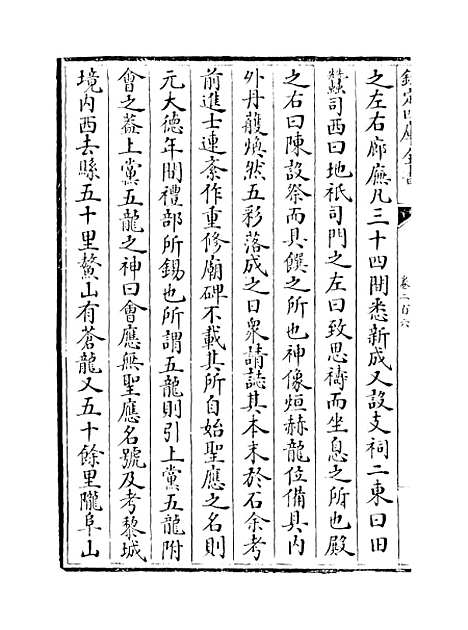 欽定四庫全書
卷二百六
之左右廊廡凡三十四間悉新成又設支祠二東曰旧
蠶司西曰地祇司門之左曰致思禱而坐息之所也殿
之右曰陳設祭而具饌之所也神像烜赫龍位備具内
外丹雘煥然五彩落成之日衆請誌其本末於石余考
前進士連紊作重修廟碑不載其所自始聖應之名則
元大德年間禮部所錫也所謂五龍則引上黨五龍附
會之葢上黨五龍之神曰會應無聖應名號及考黎城
境内西去縣五十里鰲山有蒼龍又五十餘里隴阜山